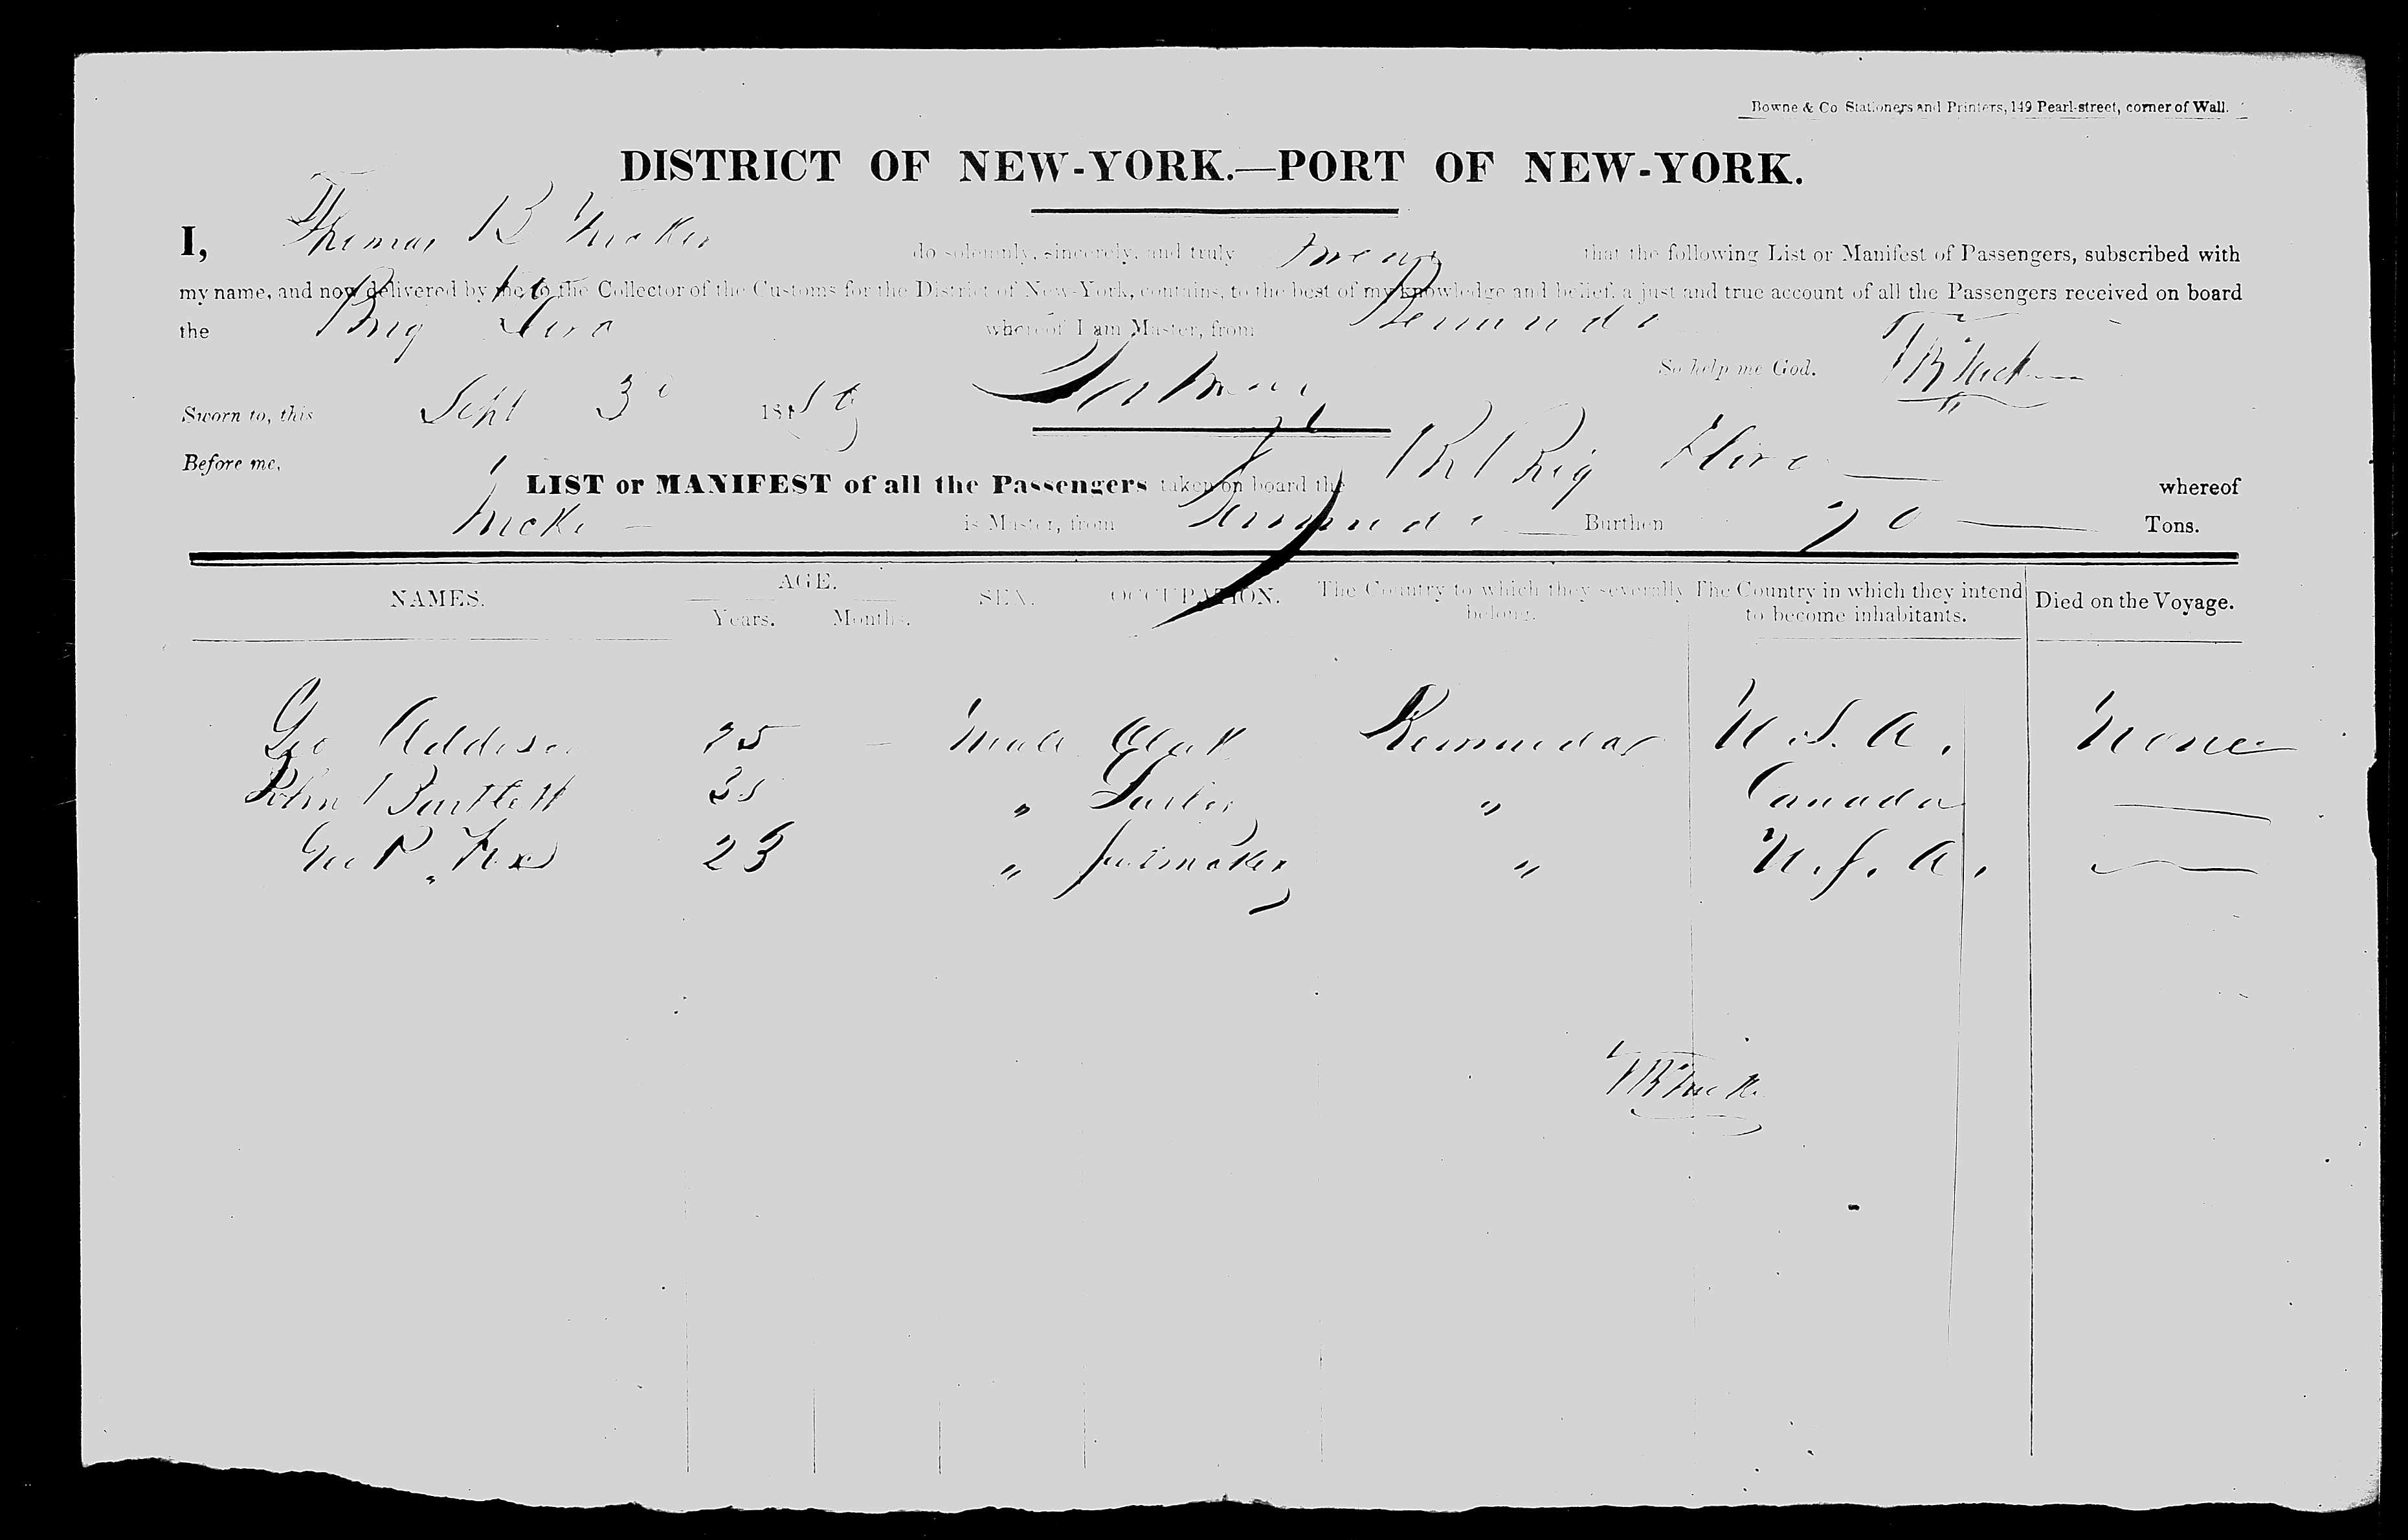 Bowne & Co Stationers and Printers, 149 Pearl-street, corner of Wall.
DISTRICT OF NEW-YORK.—PORT OF NEW-YORK.
I, Thomas B do solemnly, sincerely, and truly swear that the following List or Manifest of Passengers, subscribed with
my name, and now delivered by me to the Collector of the Customs for the District of New-York, contains, to the best of my knowledge and belief, a just and true account of all the Passengers received on board
the Brig whereof I am Master, from Bermuda
So help me God.
Sworn to, this Sept 3d
Before me,
LIST or MANIFEST of all the Passengers taken on board the Br Brig whereof
is Master, from Bermuda Burthen 70 Tons.
NAMES. AGE. SEX. OCCUPATION. The Country to which they severally belong. The Country in which they intend to become inhabitants. Died on the Voyage.
Years. Months.
Geo Addison 25 — Male Clerk Bermudas U.S.A. None
John Bartlett " " Canada —
Geo P. Fox 23 " " U.S.A. —